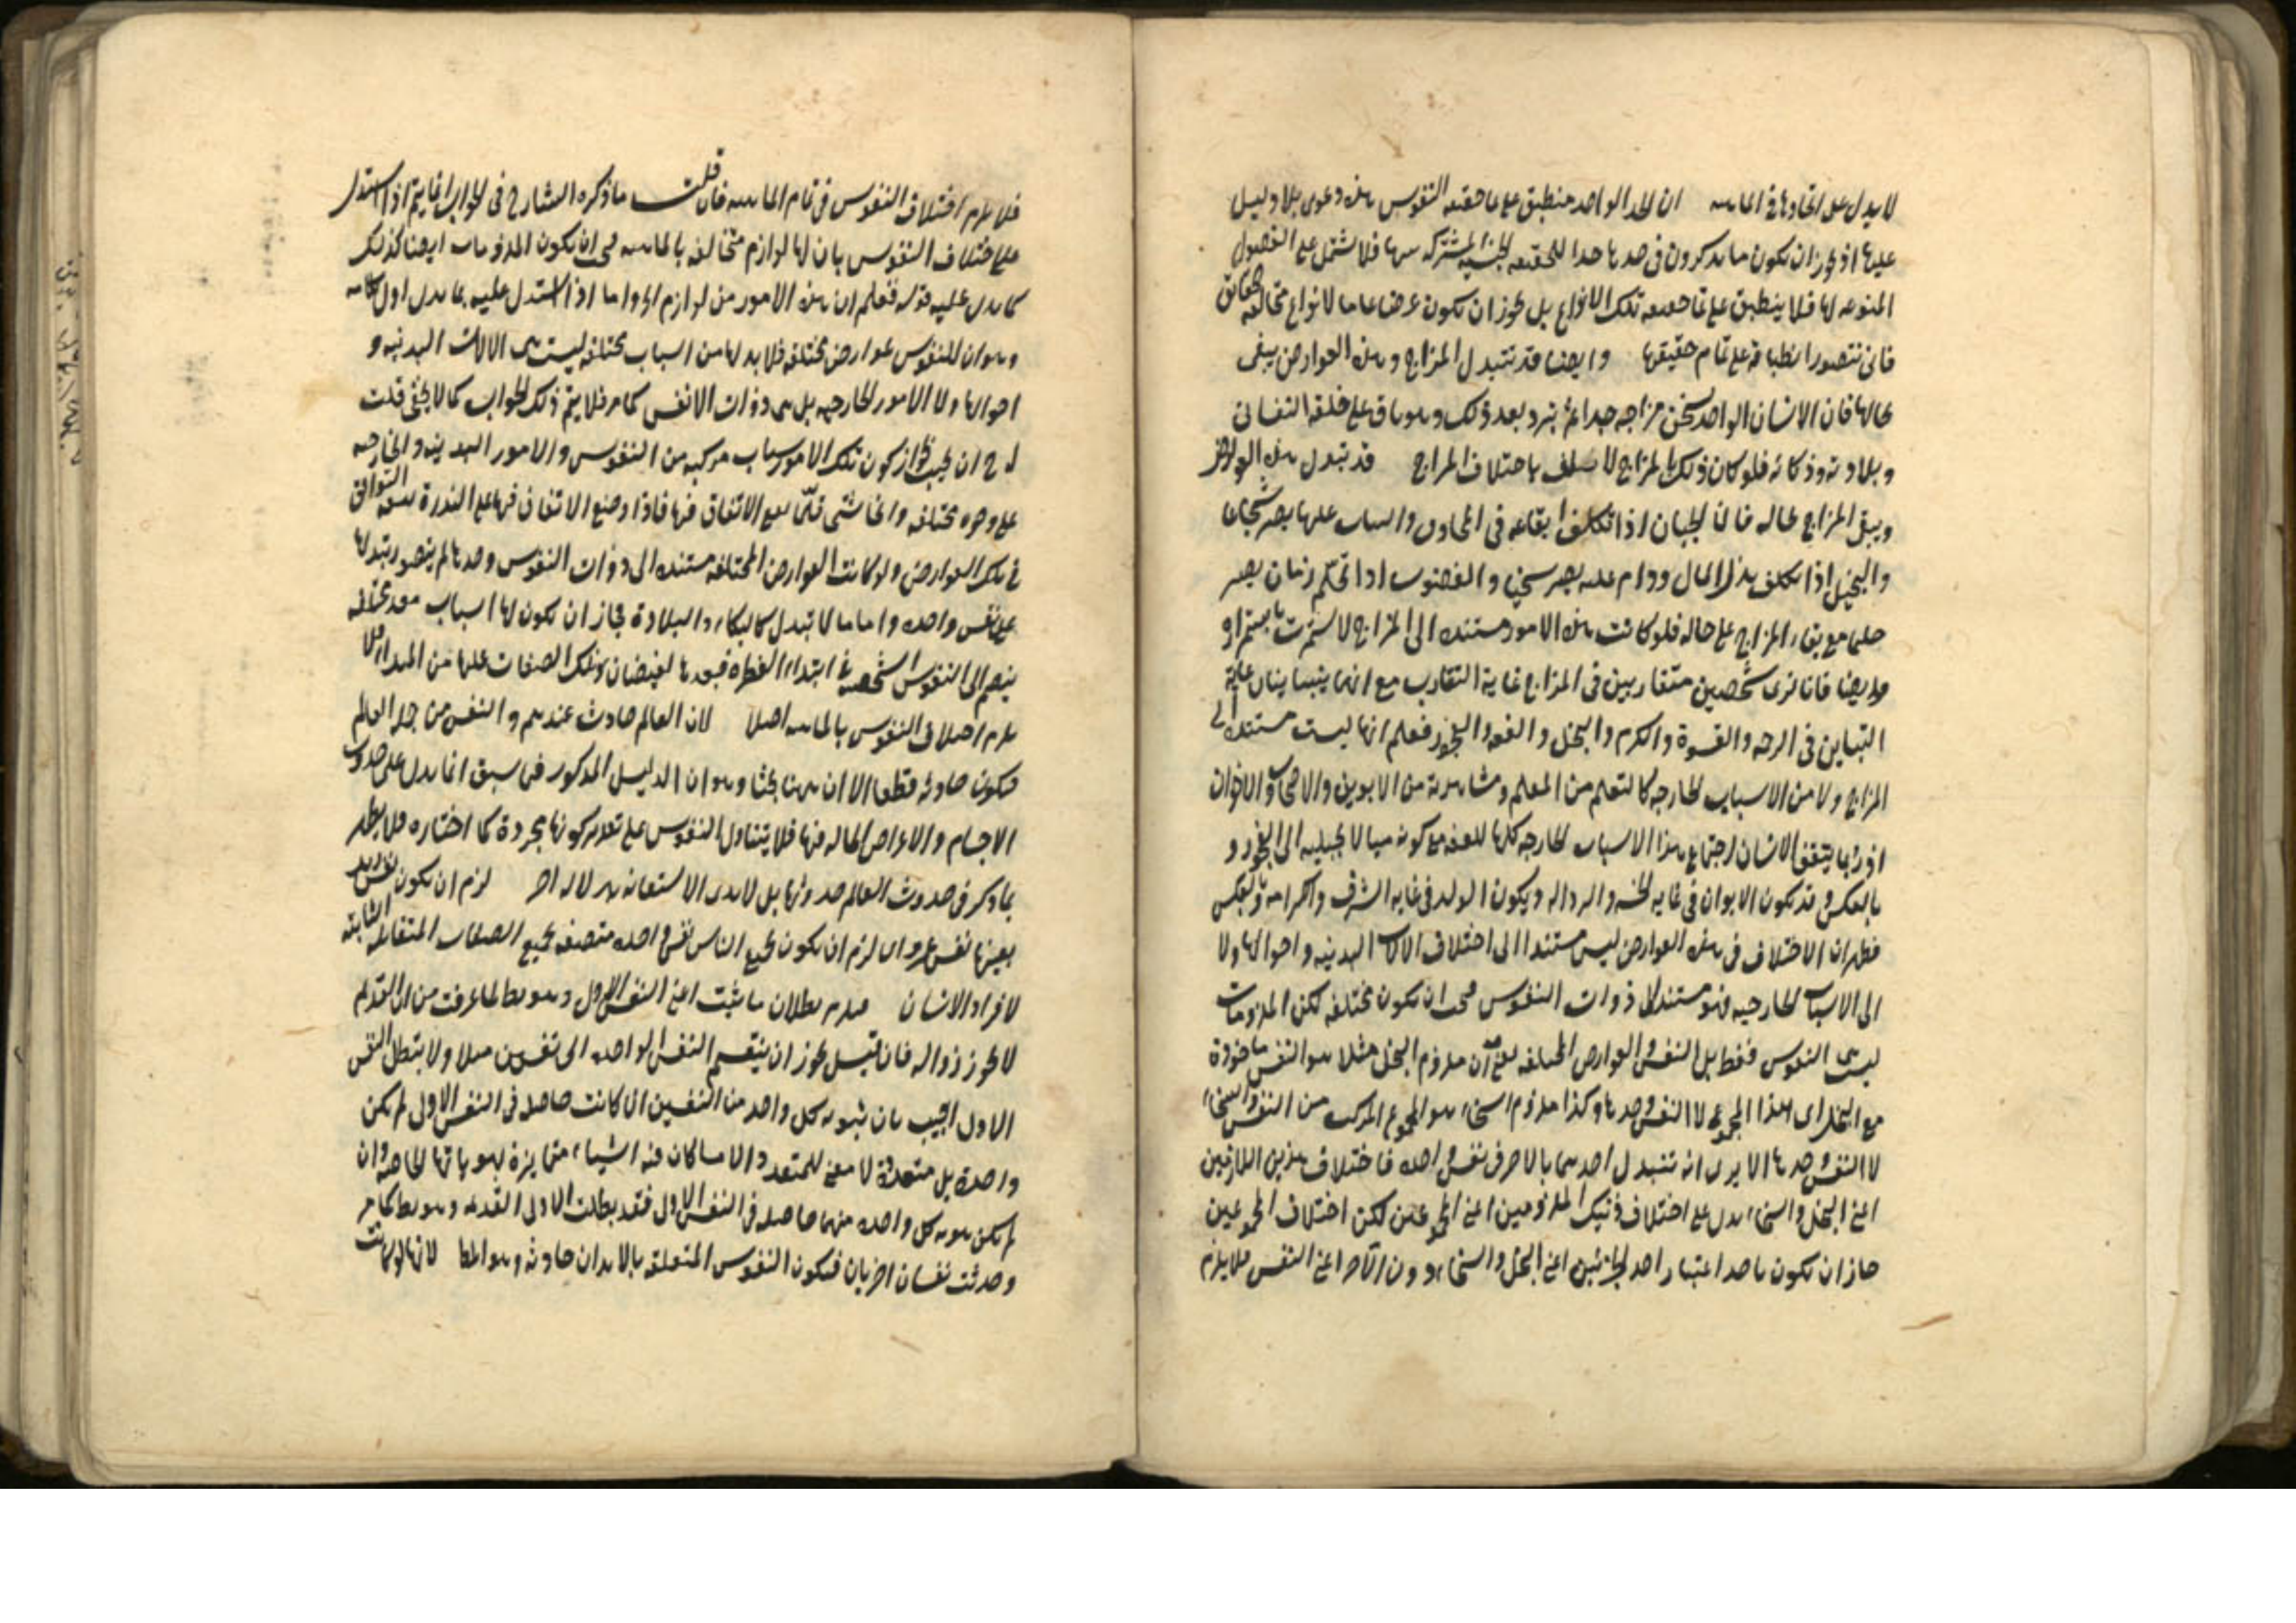 لا يدل على اتحادها في الماهية ان الحد الواحد منطبق على تمام حقيقة النفوس هذه دعوى بلا دليل
عليها اذ يجوز ان يكون ما يذكرون في حدها حدا للحقيقة الجنسية المشتركة بينها فلا يشتمل على الفصول
المنوعة لها فلا ينطبق على تمام حقيقة تلك الانواع بل يجوز ان يكون عرضا عاما لانواع متخالفة الحقائق
فانى نتصور انطباقه على تمام حقيقتها وايضا قد تتبدل المزاج وهذه العوارض يبقى
بحالها فان الانسان الواحد يسخن مزاجه جدا ثم يبرد بعد ذلك وهو باق على خلقه النفسانى
وبلادته وذكائه فلو كان ذلك بالمزاج لاختلف باختلاف المزاج قد تتبدل هذه العوارض
ويبقى المزاج بحاله فان الجبان اذا تكلف ايقاعه في المخاوف والثبات عليها يصير شجاعا
والبخيل اذا تكلف بذل المال ودام عليه يصير سخيا والغضوب اذا تحلم زمان يصير
حليما مع بقاء المزاج على حاله فلو كانت هذه الامور مستندة الى المزاج لاستمرت باستمراره
وايضا فانا نرى شخصين متقاربين في المزاج غاية التقارب مع انهما يتباينان غاية
التباين في الرحمة والقسوة والكرم والبخل والعفة والفجور فعلم انها ليست مستندة الى
المزاج ولا من الاسباب الخارجة كالتعلم من المعلم ومشاهدته من الابوين والاصحاب والاخوان
اذ ربما يتفق لانسان اجتماع هذا الاسباب الخارجة كلها للعفة مع كونه ميالا بجبلته الى الفجور و
بالعكس وقد يكون الابوان في غاية الخسة والرذالة ويكون الولد في غاية الشرف والكرامة وبالعكس
فظهر ان الاختلاف في هذه العوارض ليس مستندا الى اختلاف الالات البدنية واحوالها ولا
الى الاسباب الخارجية فهو مستند الى ذوات النفوس فيجب ان يكون مختلفة لكن الملزومات
ليست النفوس فقط بل النفس والعوارض المختلفة يعنى ان ملزوم البخل مثلا هو النفس ماخوذة
مع البخل اى هذا المجموع لا النفس وحدها وكذا ملزوم السخاء هو المجموع المركب من النفس والسخاء
لا النفس وحدها الا يرى انه تتبدل احدهما بالاخر في نفس واحدة فاختلاف هذين اللازمين
اعني البخل والسخاء يدل على اختلاف ذينك الملزومين اعني المجموعين لكن اختلاف المجموعين
جاز ان يكون باحد اعتبار احد الجزئين اعني البخل والسخاء دون الآخر اعني النفس فلا يلزم
فلا يلزم اختلاف النفوس في تمام الماهية فان قلت ما ذكره الشارح في الجواب انما يتم اذا استدل
على اختلاف النفوس بان لها لوازم متخالفة بالماهية فيجب ان يكون الملزومات ايضا كذلك
كما يدل عليه قوله فنعلم ان هذه الامور من لوازم الخ واما اذا استدل عليه بما يدل اول كلامه
وهو ان للنفوس عوارض مختلفة فلا بد لها من اسباب مختلفة ليست هى الالات البدنية و
احوالها ولا الامور الخارجية بل هى ذوات الانفس كما مر فلا يتم ذلك الجواب كما لا يخفى قلت
له ح ان يجيب بجواز كون تلك الامور باسباب مركبة من النفوس والامور البدنية والخارجة
على وجوه مختلفة وانحاء شتى قلما يقع الاتفاق فيها فاذا وضع الاتفاق فيها على الندرة يقع التوافق
في تلك العوارض ولو كانت العوارض المختلفة مستندة الى ذوات النفوس وحدها لم يتصور تبدلها
على نفس واحدة واما ما لا تبدل كالبكاء والبلادة فجاز ان يكون لها اسباب معدة مختلفة
ينضم الى النفوس الشخصية في ابتداء الفطرة فيعدها لفيضان تلك الصفات عليها من المبداء فلا
يلزم اختلاف النفوس بالماهية اصلا لان العالم حادث عندهم والنفس من جملة العالم
فيكون حادثة قطعا الا ان ههنا بحثا وهو ان الدليل المذكور فيما سبق انما يدل على حدوث
الاجسام والاعراض الحالة فيها فلا يتناول النفوس على تقدير كونها مجردة كما اختاره فلا يظهر
بما ذكر في حدوث العالم حدوثها بل لا بد من الاستعانة بدلالة اخر لزم ان يكون نفس زيد
بعينها نفس عمرو اى لزم ان يكون لجميع الناس نفس واحدة متصفة بجميع الصفات المتقابلة الثابتة
لافراد الانسان فيلزم بطلان ما ثبت اعني النفس الاول وهو بط لما عرفت من ان القديم
لا يجوز زواله فان قيل يجوز ان ينقسم النفس الواحدة الى نفسين مثلا ولا يبطل النفس
الاول اجيب بان هوية كل واحد من النفسين ان كانت حاصلة في النفس الاولى لم يكن
واحدة بل متعددة اذ لا معنى للمتعدد الا ما كان فيه اشياء متمايزة بهوياتها الخاصة وان
لم يكن هوية كل واحدة منهما حاصلة في النفس الاولى فقد بطلت الاولى القديمة وهو بط كما مر
وحدثت نفسان اخريان فيكون النفوس المتعلقة بالابدان حادثة وهو المط لانها لو كانت